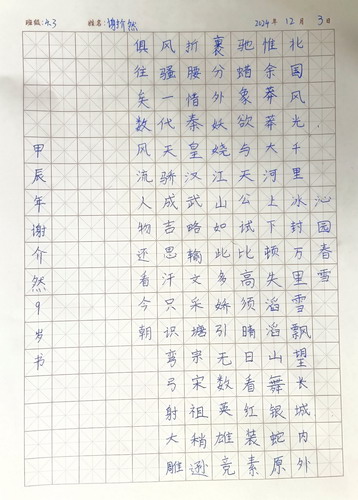 班级:4.3 姓名:谢介然 2024年12月3日
沁园春雪
北国风光千里冰封万里雪飘望长城内外
惟余莽莽大河上下顿失滔滔山舞银蛇原
驰蜡象欲与天公试比高须晴日看红装素
裹分外妖娆江山如此多娇引无数英雄竞
折腰惜秦皇汉武略输文采塘宗宋祖稍逊
风骚一代天骄成吉思汗只识弯弓射大雕
俱往矣数风流人物还看今朝
甲辰年谢介然9岁书